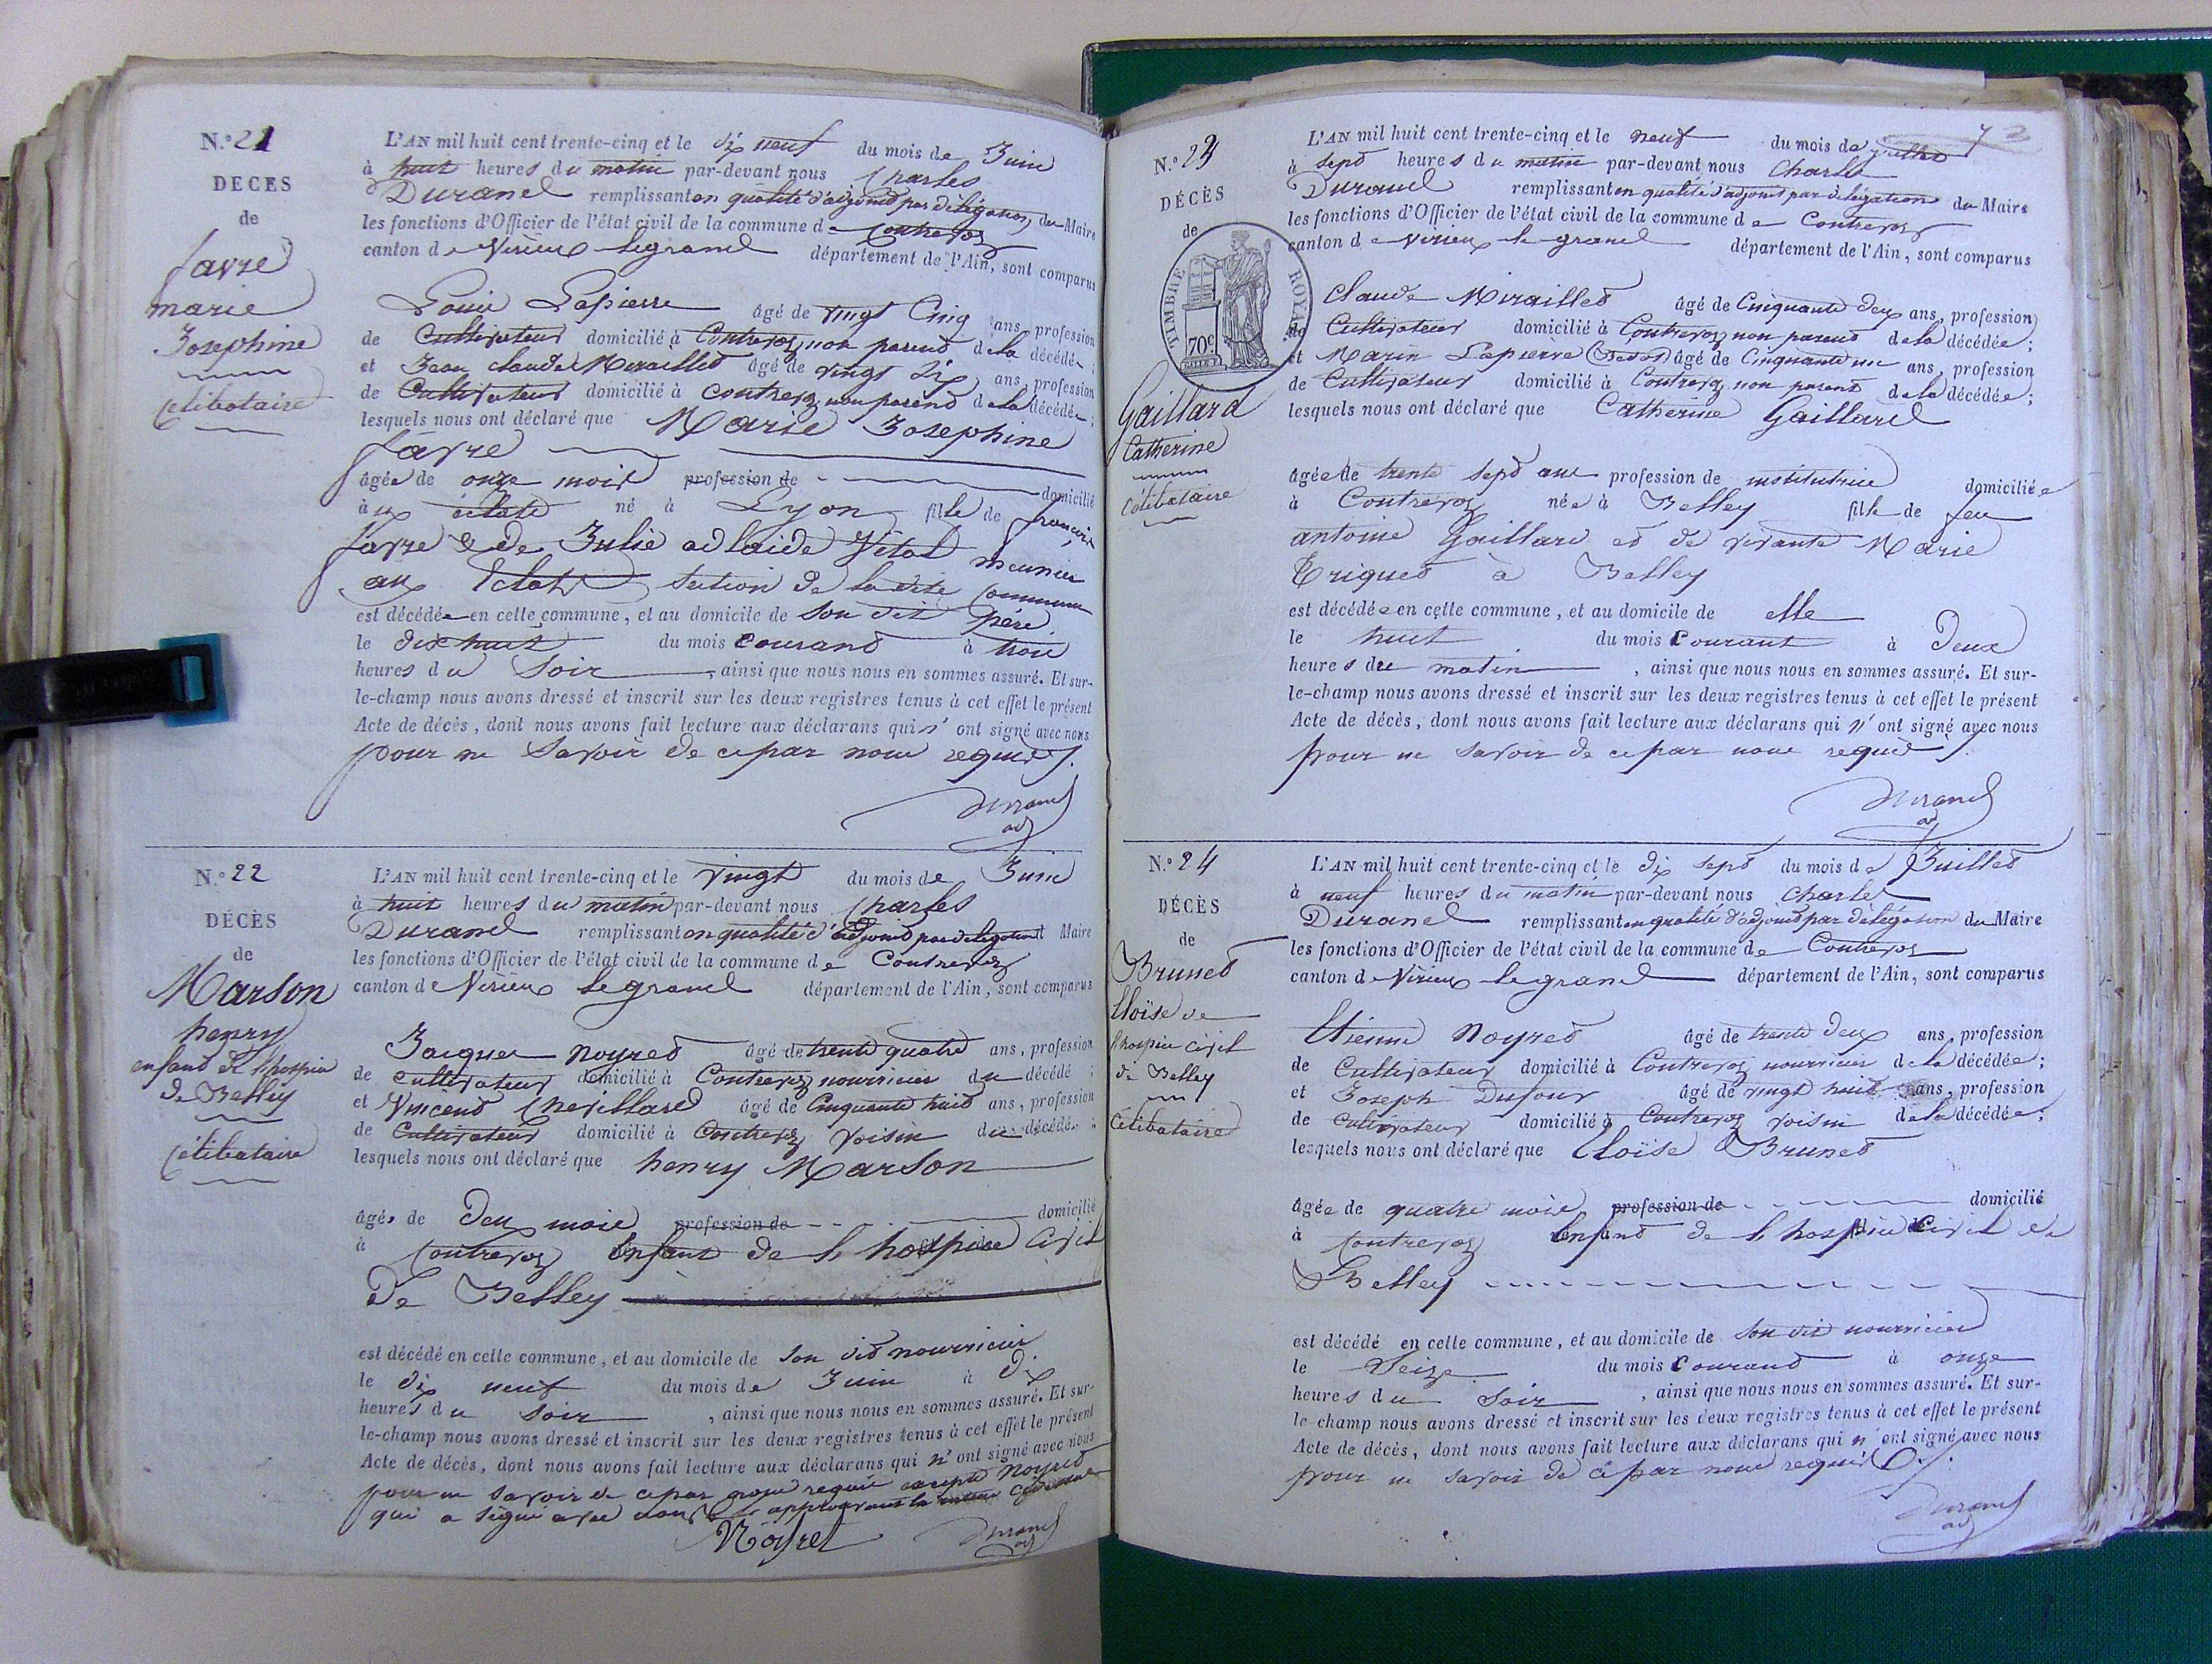 N.° 21
DÉCÈS
de
favre
marie
Josephine
Celibataire
L'AN mil huit cent trente-cinq et le dix neuf du mois de Juin
à huit heures du matin par-devant nous Charles
Durand remplissant en qualité d'adjoint par délégation du Maire
les fonctions d'Officier de l'état civil de la commune de Contrevoz
canton de Virieux legrand département de l'Ain, sont comparus
Louis Lapierre âgé de vingt Cinq ans, profession
de Cultivateur domicilié à Contrevoz, non parend de la décédée ;
et Jean claude Miraillet âgé de vingt Six ans, profession
de Cultivateur domicilié à Contrevoz non parend de la décédée ;
lesquels nous ont déclaré que Marie Josephine
favre
âgée de onze mois profession de domicilié
aux éclats né à Lyon fille de françois
favre & de Julie adlaide Vital meunier
aux Eclats, section de la dite Commune
est décédée en celle commune, et au domicile de Son dit père
le dix huit du mois courand à trois
heures du Soir, ainsi que nous nous en sommes assuré. Et sur-
le-champ nous avons dressé et inscrit sur les deux registres tenus à cet effet le présent
Acte de décès, dont nous avons fait lecture aux déclarans qui n'ont signé avec nous
pour ne Savoir de ce par nous requis /.
Durand
adj
N.° 22
DÉCÈS
de
Marson
henry
enfand de l'hospice
de Belley
Célibataire
L'AN mil huit cent trente-cinq et le vingt du mois de Juin
à huit heures du matin par-devant nous Charles
Durand remplissant en qualité d'adjoint par delegation d Maire
les fonctions d'Officier de l'état civil de la commune de Contrevoz
canton de Virieux legrand département de l'Ain, sont comparus
Jacques Noyret âgé de trente quatre ans, profession
de cultivateur domicilié à Contrevoz nourricier du décédé ;
et Vincend Chevillard âgé de Cinquante huit ans, profession
de Cultivateur domicilié à Contrevoz voisin du décédé ;
lesquels nous ont déclaré que henry Marson
âgés de deux mois profession de domicilié
à Contrevoz Enfant de l'hospice Civil
de Belley
est décédé en celle commune, et au domicile de son dit nourricier
le dix neuf du mois de Juin à dix
heures du Soir, ainsi que nous nous en sommes assuré. Et sur-
le-champ nous avons dressé et inscrit sur les deux registres tenus à cet effet le présent
Acte de décès, dont nous avons fait lecture aux déclarans qui n'ont signé avec nous
pour ne savoir de ce par nous requis excepté Noyret
qui a signé avec nous approuvant la
Noyret
Durand
adj
N.° 23
DÉCÈS
de
TIMBRE ROYAL
70c
Gaillard
Catherine
Célibataire
L'AN mil huit cent trente-cinq et le neuf du mois de juillet
à sept heures du matin par-devant nous Charles
Durand remplissant en qualité d'adjoint par délégation du Maire
les fonctions d'Officier de l'état civil de la commune de Contrevoz
canton de Virieux le grand département de l'Ain, sont comparus
Claude Miraillet âgé de Cinquante deux ans, profession
de Cultivateur domicilié à Contrevoz non parend de la décédée ;
et Marin Lapierre âgé de Cinquante un ans, profession
de Cultivateur domicilié à Contrevoz non parent de la décédée ;
lesquels nous ont déclaré que Catherine Gaillard
âgée de trente sept ans profession de institutrice domiciliée
à Contrevoz née à Belley fille de feu
antoine Gaillard et de vivante Marie
Triquet à Belley
est décédée en celle commune, et au domicile de elle
le huit du mois Courant à deux
heures du matin, ainsi que nous nous en sommes assuré. Et sur-
le-champ nous avons dressé et inscrit sur les deux registres tenus à cet effet le présent
Acte de décès, dont nous avons fait lecture aux déclarans qui n'ont signé avec nous
pour ne savoir de ce par nous requis /.
Durand
adj
N.° 24
DÉCÈS
de
Brunet
Eloïse de
l'hospice civil
de Belley
Célibataire
L'AN mil huit cent trente-cinq et le dix sept du mois de Juillet
à neuf heures du matin par-devant nous Charles
Durand remplissant en qualité d'adjoint par délégation du Maire
les fonctions d'Officier de l'état civil de la commune de Contrevoz
canton de Virieux legrand département de l'Ain, sont comparus
Etienne Noyret âgé de trente deux ans, profession
de Cultivateur domicilié à Contrevoz nourricier de la décédée ;
et Joseph Dufour âgé de vingt huit ans, profession
de cultivateur domicilié à Contrevoz voisin de la décédée ;
lesquels nous ont déclaré que Eloïse Brunet
âgée de quatre mois profession de domicilié
à Contrevoz Enfand de l'hospice Civil de
Belley
est décédé en celle commune, et au domicile de Son dit nourricier
le Seize du mois Courand à onze
heures du Soir, ainsi que nous nous en sommes assuré. Et sur-
le-champ nous avons dressé et inscrit sur les deux registres tenus à cet effet le présent
Acte de décès, dont nous avons fait lecture aux déclarans qui n'ont signé avec nous
pour ne savoir de ce par nous requis /.
Durand
adj